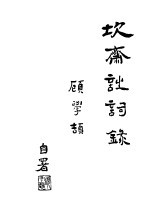 坎齋詩詞錄
顧學頡
自署